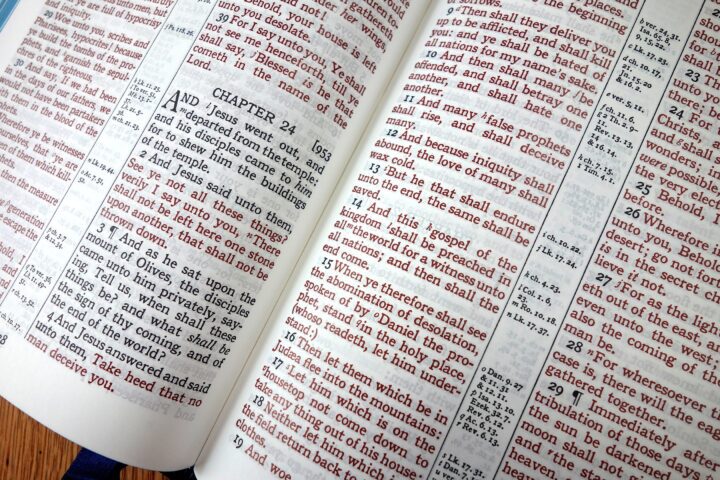 ye are full of hypocrisy
29 Woe unto you, scribes and
hypocrites! because
build the tombs of the
garnish the
30 And say, If we had been
the days of our fathers, we
not have been partakers
them in the blood of the
Wherefore ye be witnesses
yourselves, that ye are
of them which kill
then the measure
generation
escape the
under her wings,
Behold, your house is left
unto you desolate.
39 For I say unto you, Ye shall
not see me henceforth, till ye
shall say, Blessed is he that
cometh in the name of the
Lord.
CHAPTER 24 [953
AND Jesus went out, and
departed from the temple:
and his disciples came to him
for to shew him the buildings
of the temple.
2 And Jesus said unto them,
See ye not all these things?
verily I say unto you, There
shall not be left here one stone
upon another, that shall not be
thrown down.
3 ¶ And as he sat upon the
mount of Olives, the disciples
came unto him privately, say-
ing, Tell us, when shall these
things be? and what shall be
the sign of thy coming, and of
the end of the world?
4 And Jesus answered and said
unto them, Take heed that no
man deceive you.
sorrows.
9 Then shall they deliver you
up to be afflicted, and shall kill
you: and ye shall be hated of
all nations for my name's sake.
10 And then shall many be
offended, and shall betray one
another, and shall hate one
another.
11 And many false prophets
shall rise, and shall deceive
many.
12 And because iniquity shall
abound, the love of many shall
wax cold.
13 But he that shall endure
unto the end, the same shall be
saved.
14 And this gospel of the
kingdom shall be preached in
all the world for a witness unto
all nations; and then shall the
end come.
15 When ye therefore shall see
the abomination of desolation,
spoken of by Daniel the pro-
phet, stand in the holy place,
(whoso readeth, let him under-
stand:)
16 Then let them which be in
Judæa flee into the mountains:
17 Let him which is on the
housetop not come down to
take any thing out of his house:
18 Neither let him which is in
the field return back to
clothes.
19 And woe
b ver. 24, 31.
9, 15, 22.
d ch. 10. 17,
21.
Jn. 15. 20
& 16. 2.
e ver. 5, 11.
f ch. 11. 6.
g 2 Th. 2. 9-
11.
Rev. 13. 13.
& 16. 14.
h ch. 7. 15.
1 Tim. 4. 1.
i ch. 10. 22.
j Lk. 17. 24.
k ch. 4. 23.
l Col. 1. 6,
23.
m Ro. 10. 18.
n Lk. 17. 37.
o Dan. 9. 27
& 11. 31
& 12. 11.
p Isa. 13. 10.
Ezek. 32. 7.
Rev. 6. 12.
q Ac. 6. 13.
r Rev. 6. 13.
s Lk. 17. 31.
t Dan. 7.
23 Then
unto you,
24 For
Christs, and
and shall
wonders; in
were possible
the very elect
25 Behold, I
before.
26 Wherefore if
unto you, Behold
desert; go not for
is in the secret ch
lieve it not.
27 For as the light
eth out of the east, a
unto the west
also the coming of
man be.
28 For wheresoever t
case is, there will the ea
gathered together.
29 ¶ Immediately after
tribulation of those days
the sun be darkened
moon shall not
and the stars
heaven,